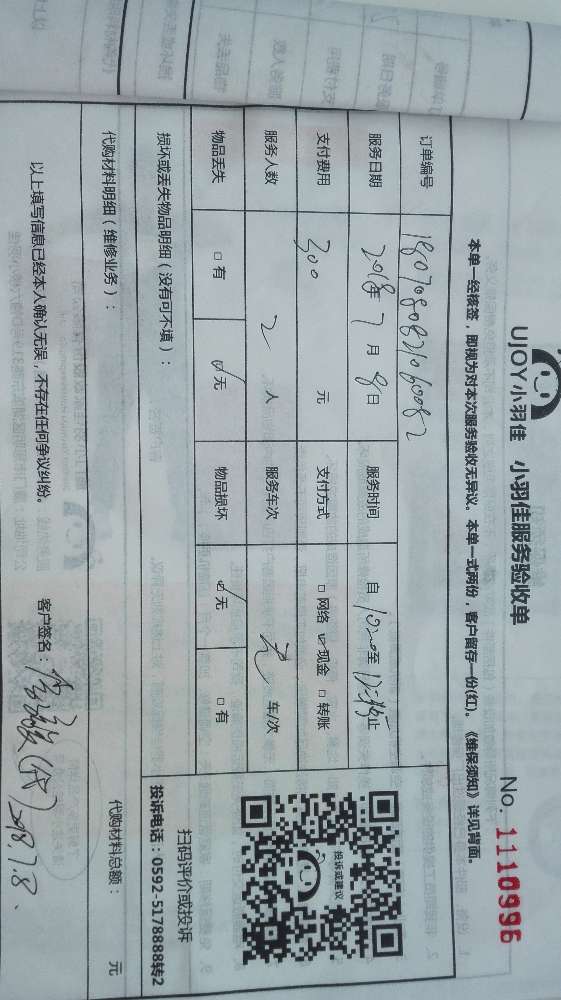 UJOY小羽佳 小羽佳服务验收单
No. 1110996
本单一经核签，即视为对本次服务验收无异议。本单一式两份，客户留存一份(红)。《维保须知》详见背面。
订单编号 180708082106082
服务日期 2018年7月8日 服务时间 自10:20至12:45止
支付费用 300 元 支付方式 □网络 ☑现金 □转账
服务人数 2 人 服务车次 无 车/次
物品丢失 □有 ☑无 物品损坏 ☑无 □有
投诉或建议
扫码评价或投诉
投诉电话：0592-5178888转2
损坏或丢失物品明细（没有可不填）：
代购材料明细（维修业务）： 代购材料总额： 元
以上填写信息已经本人确认无误，不存在任何争议纠纷。 客户签名： (代) 2018.7.8